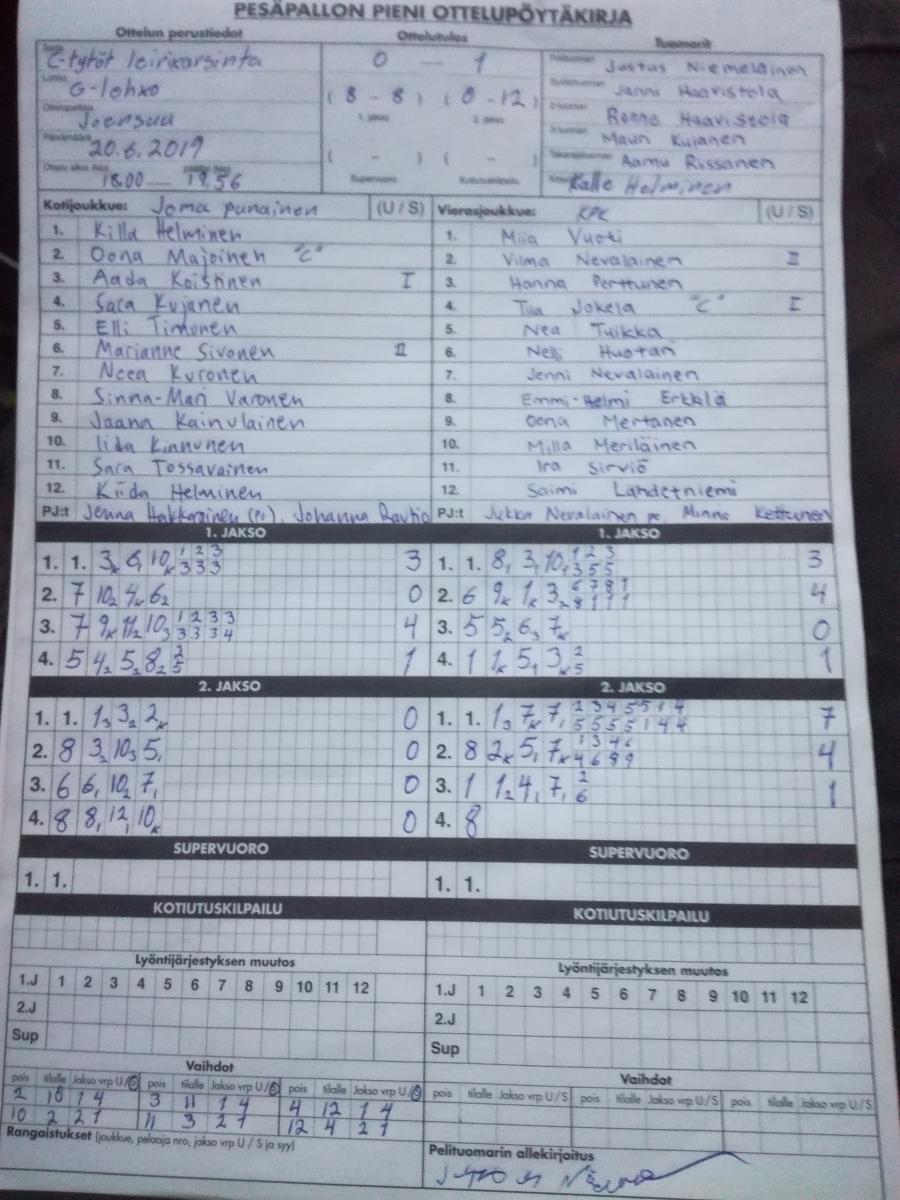 PESÄPALLON PIENI OTTELUPÖYTÄKIRJA
Ottelun perustiedot Ottelutulos Tuomarit
Sarja C-tytöt leirikarsinta 0 — 1 Pelituomari Justus Niemeläinen
Lohko G-lohko ( 8 - 8 ) ( 0 - 12 ) Syöttötuomari Janni Haaristola
Ottelupaikka Joensuu 1. jakso 2. jakso 2-tuomari Ronne Haavistola
Päivämäärä 20.6.2019 3-tuomari Mauri Kujanen
( - ) ( - ) Takarajatuomari Aamu Rissanen
Ottelu alkoi (klo) 18.00 — päättyi (klo) 19.56 Supervuoro Kotiutuskilpailu Kirjuri Kalle Helminen
Kotijoukkue: Joma punainen (U / S) Vierasjoukkue: KPK (U / S)
1. Killa Helminen 1. Miia Vuoti
2. Oona Majoinen "C" 2. Vilma Nevalainen II
3. Aada Koistinen I 3. Hanna Perttunen
4. Saca Kujanen 4. Tiia Jokela "C" I
5. Elli Timonen 5. Nea Tuikka
6. Marianne Sivonen II 6. Nelli Huotari
7. Neea Kuronen 7. Jenni Nevalainen
8. Sinna-Mari Varonen 8. Emmi-Helmi Erkkilä
9. Jaana Kainulainen 9. Oona Mertanen
10. Iida Kinnunen 10. Milla Meriläinen
11. Saca Tossavainen 11. Ira Sirviö
12. Kiida Helminen 12. Saimi Lahdetniemi
PJ:t Jenna Hakkarainen (Pe), Johanna Rautio PJ:t Jukka Nevalainen pe, Minna Kettunen
1. JAKSO 1. JAKSO
1. 1. 3ₖ 6, 10ₖ 1 2 3 3 3 3 3 1. 1. 8, 3, 10, 1 2 3 3 5 5 3
2. 7 10₂ 4ₖ 6₂ 0 2. 6 9ₖ 1ₖ 3₂ 6 7 8 1 8 1 1 1 4
3. 7 9ₖ 11₂ 10₃ 1 2 3 3 3 3 3 4 4 3. 5 5₂ 6₃ 7ₖ 0
4. 5 4₂ 5₂ 8₂ 2 5 1 4. 1 1ₖ 5₁ 3ₖ 2 5 1
2. JAKSO 2. JAKSO
1. 1. 1₃ 3₂ 2ₖ 0 1. 1. 1₃ 7ₖ 7₁ 2 3 4 5 5 1 4 5 5 5 5 1 4 4 7
2. 8 3₂ 10₃ 5₁ 0 2. 8 2ₖ 5₁ 7ₖ 1 3 4 6 4 6 8 9 4
3. 6 6₁ 10₂ 7₁ 0 3. 1 1₂ 4₁ 7₁ 2 6 1
4. 8 8₁ 12₁ 10ₖ 0 4. 8
SUPERVUORO SUPERVUORO
1. 1. 1. 1.
KOTIUTUSKILPAILU KOTIUTUSKILPAILU
Lyöntijärjestyksen muutos Lyöntijärjestyksen muutos
1.J 1 2 3 4 5 6 7 8 9 10 11 12 1.J 1 2 3 4 5 6 7 8 9 10 11 12
2.J 2.J
Sup Sup
Vaihdot Vaihdot
pois tilalle Jakso vrp U/S pois tilalle Jakso vrp U/S pois tilalle Jakso vrp U/S pois tilalle Jakso vrp U/S pois tilalle Jakso vrp U/S pois tilalle Jakso vrp U/S
2 10 1 4 3 11 1 4 4 12 1 4
10 2 2 1 11 3 2 1 12 4 2 1
Rangaistukset (joukkue, pelaaja nro, jakso vrp U / S ja syy) Pelituomarin allekirjoitus